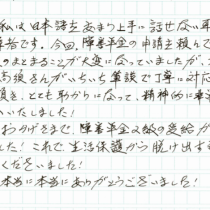 私は日本語をあまり上手に話せない耳
者です。今回、障害年金の申請を頼んで
のまとまることが大変になっていましたが、
高根さんがいちいち筆談で丁寧に対応
頂き、とても助かになって、精神的に
いたしました!
おかげさまで、障害年金2級の受給が
した!これで、生活保護から脱け出す
くださいました!
本当に本当にありがとうございました!